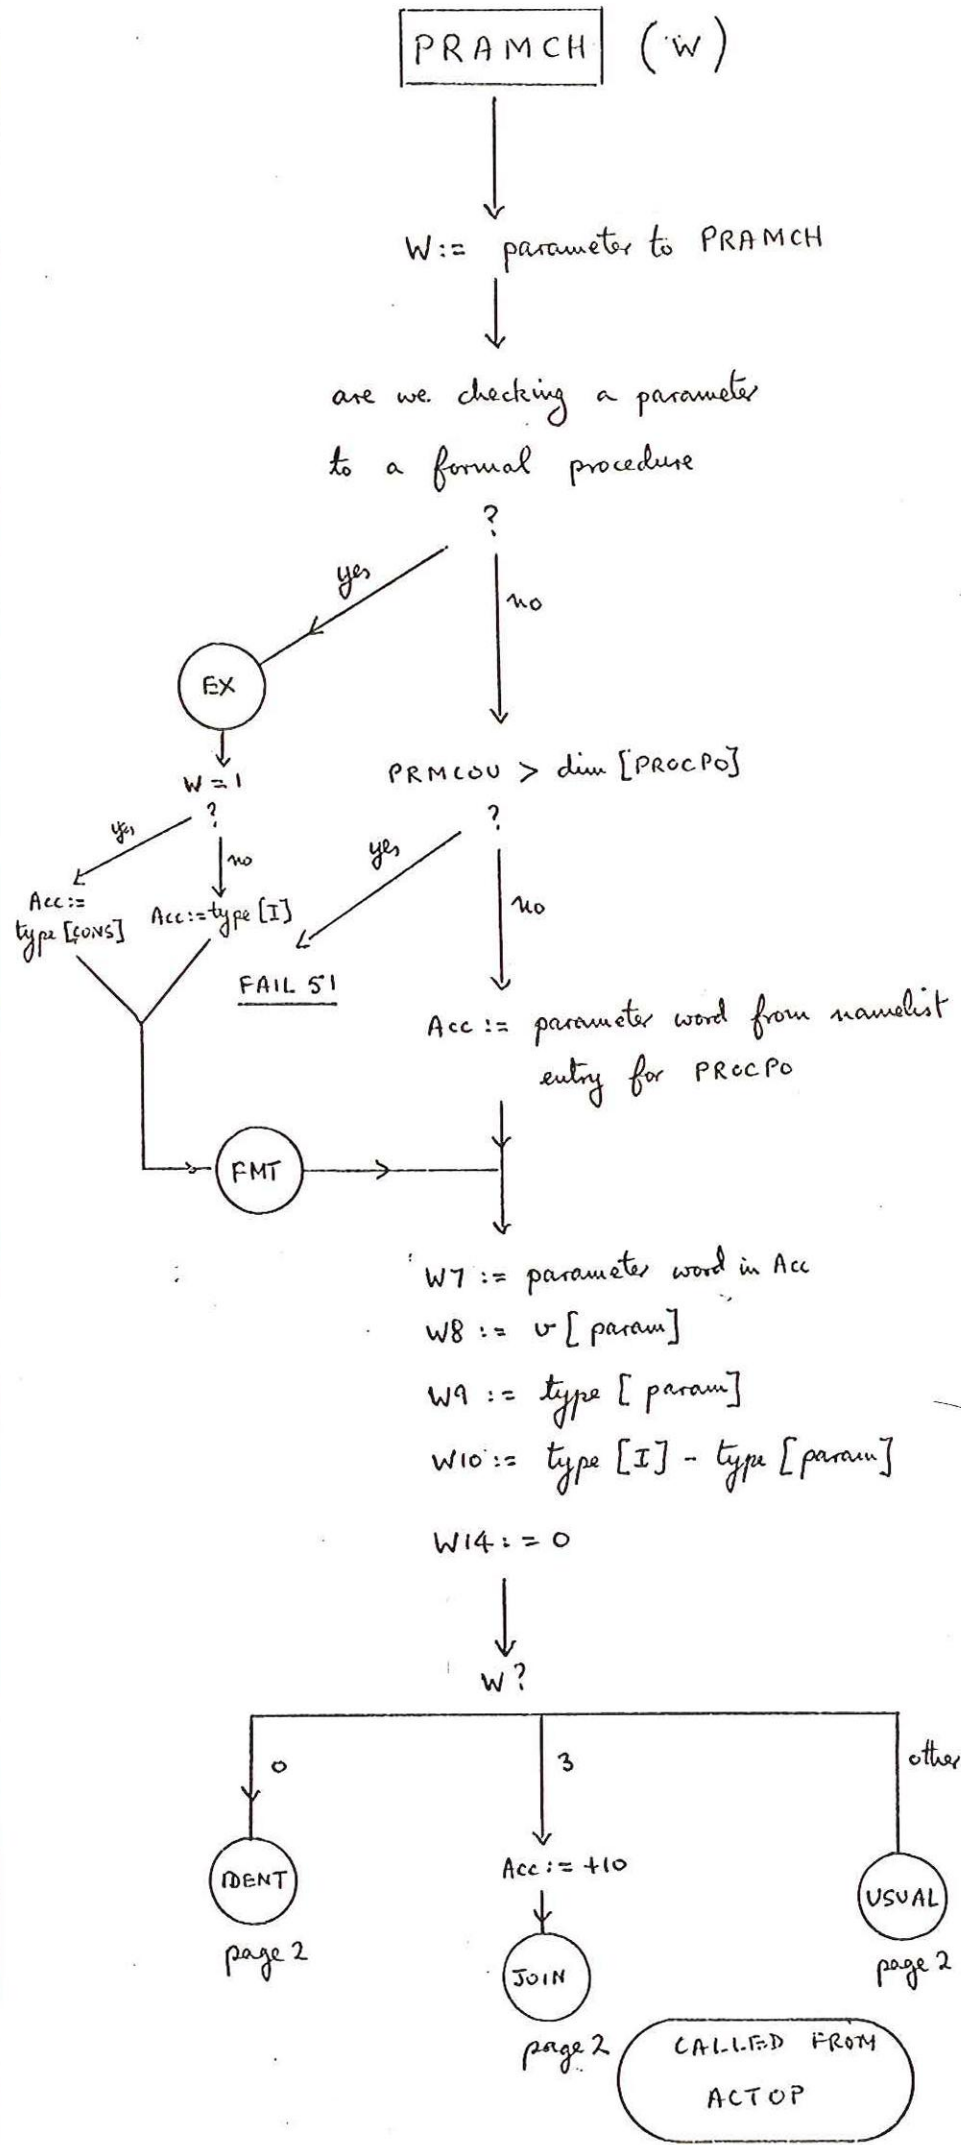 PRAMCH (W)
W:= parameter to PRAMCH
are we checking a parameter
to a formal procedure
?
yes
no
EX
W = 1
?
yes
no
Acc:=
type [CONS]
Acc:=type [I]
PRMCOU > dim [PROCPO]
?
yes
no
FAIL 51
Acc := parameter word from namelist
entry for PROCPO
FMT
W7 := parameter word in Acc
W8 := v [param]
W9 := type [param]
W10 := type [I] - type [param]
W14 := 0
W?
0
3
other
IDENT
page 2
Acc := +10
JOIN
page 2
USUAL
page 2
CALLED FROM
ACTOP